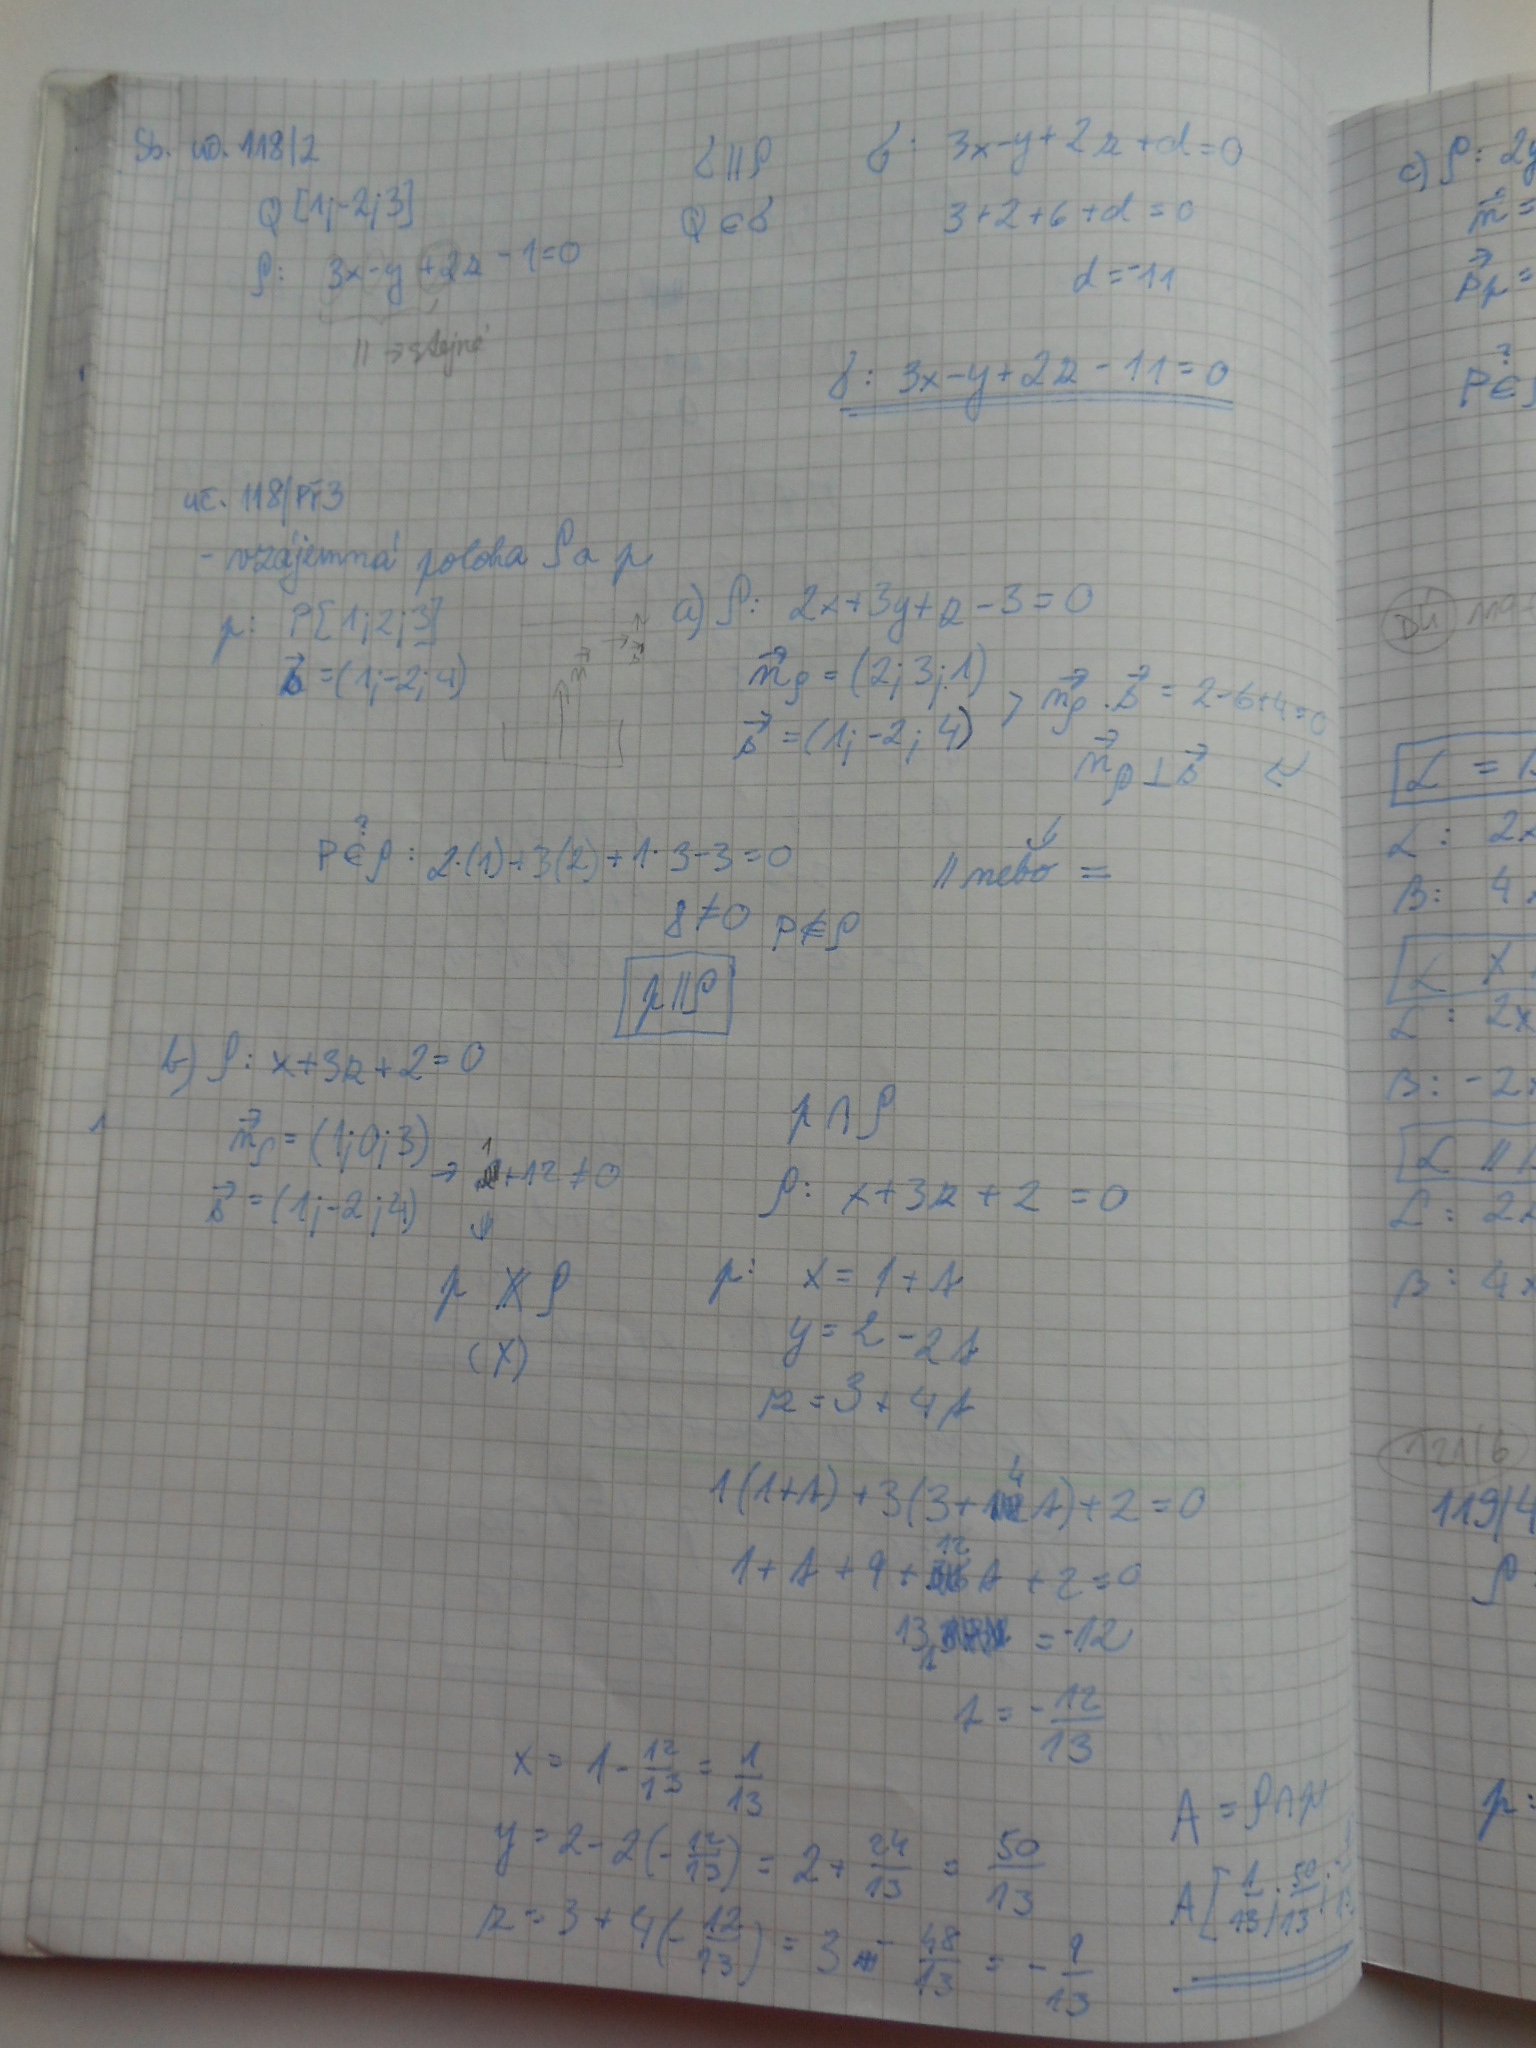 Sb. úl. 118/2
Q [1;-2;3]
ρ: 3x-y+2z-1=0
|| → stejné
σ||ρ
Q∈σ
σ: 3x-y+2z+d=0
3+2+6+d=0
d=-11
σ: 3x-y+2z-11=0
uč. 118/Př3
- vzájemná poloha ρ a p
p: P[1;2;3]
s⃗=(1;-2;4)
n⃗ s⃗
a) ρ: 2x+3y+z-3=0
n⃗ρ=(2;3;1)
s⃗=(1;-2;4) > n⃗ρ.s⃗=2-6+4=0
n⃗ρ⊥s⃗
|| nebo =
P∈ρ: 2·(1)+3(2)+1·3-3=0
?
8≠0 P∉ρ
p||ρ
b) ρ: x+3z+2=0
n⃗ρ=(1;0;3)
s⃗=(1;-2;4) → 1+12≠0
p ∦ ρ
(X)
p∩ρ
ρ: x+3z+2=0
p: x=1+t
y=2-2t
z=3+4t
1(1+t)+3(3+4t)+2=0
1+t+9+12t+2=0
13t=-12
t=-12/13
x=1-12/13=1/13
y=2-2(-12/13)=2+24/13=50/13
z=3+4(-12/13)=3-48/13=-9/13
A=ρ∩p
A[1/13;50/13;
c) ρ: 2y
n⃗=
P∈ρ
?
DÚ
2x
B: 4x
2x
B: -2x
2x
B: 4x
121/6
119/4
ρ
p: